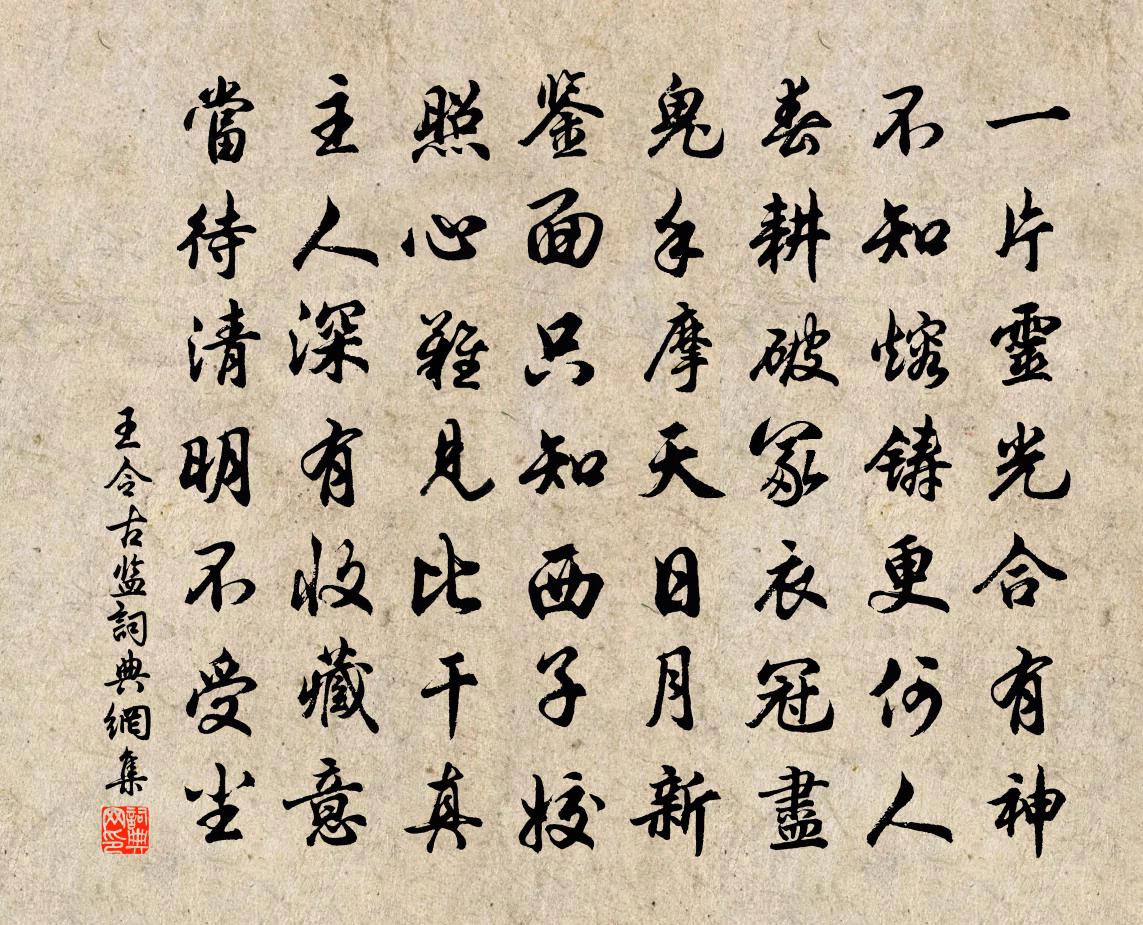 一片靈光合有神
不知熔鑄更何人
春耕破冢衣冠盡
鬼手摩天日月新
鉴面只知西子姣
照心難見比干真
主人深有收藏意
當待清明不受尘
王令古监詞典網集
詞典网印